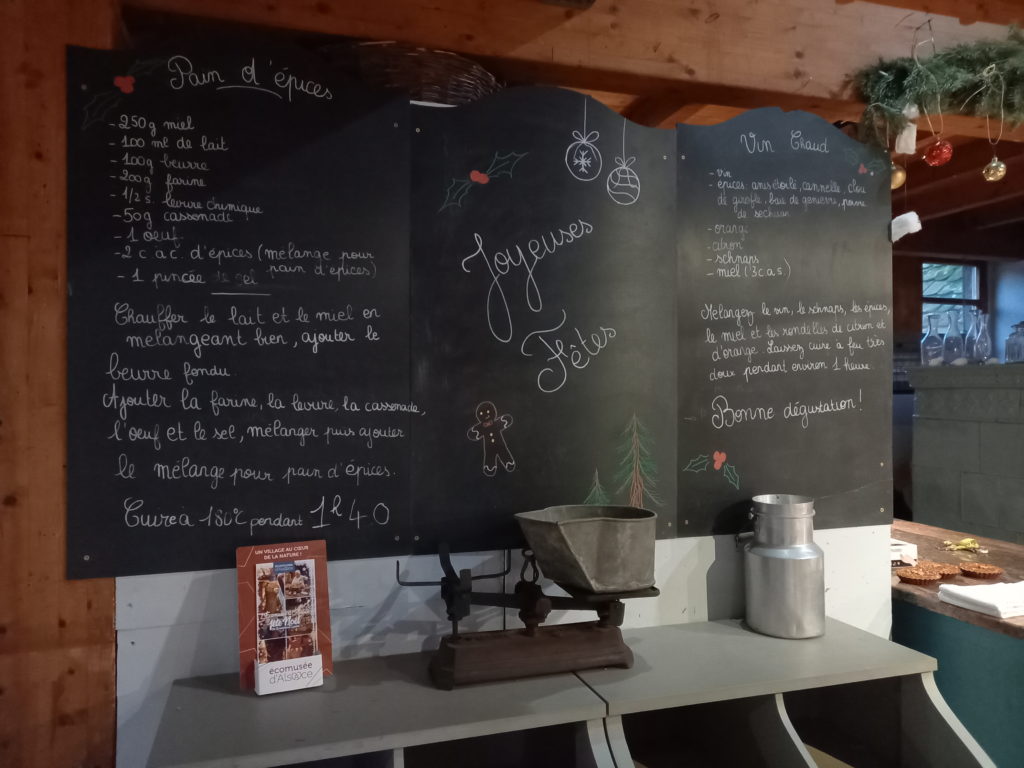 Pain d'épices
- 250g miel
- 100 ml de lait
- 100g beurre
- 200g farine
- 1/2 s. levure chimique
- 50g cassonade
- 1 oeuf
- 2 c a c d'épices (mélange pour
pain d'épices)
- 1 pincée de sel
Chauffer le lait et le miel en
mélangeant bien, ajouter le
beurre fondu.
Ajouter la farine, la levure, la cassonade,
l'oeuf et le sel, mélanger puis ajouter
le mélange pour pain d'épices.
Cuire à 180°c pendant 1h40
Joyeuses
Fêtes
Vin Chaud
- vin
- épices anis étoilé, cannelle, clou
de girofle, baie de genièvre, poivre
de sechuan
- orange
- citron
- schnaps
- miel (3 c a s.)
Mélangez le vin, le schnaps, les épices,
le miel et les rondelles de citron et
d'orange. Laissez cuire à feu très
doux pendant environ 1 heure.
Bonne dégustation!
UN VILLAGE AU CŒUR
DE LA NATURE !
Noël
écomusée
d'Alsace